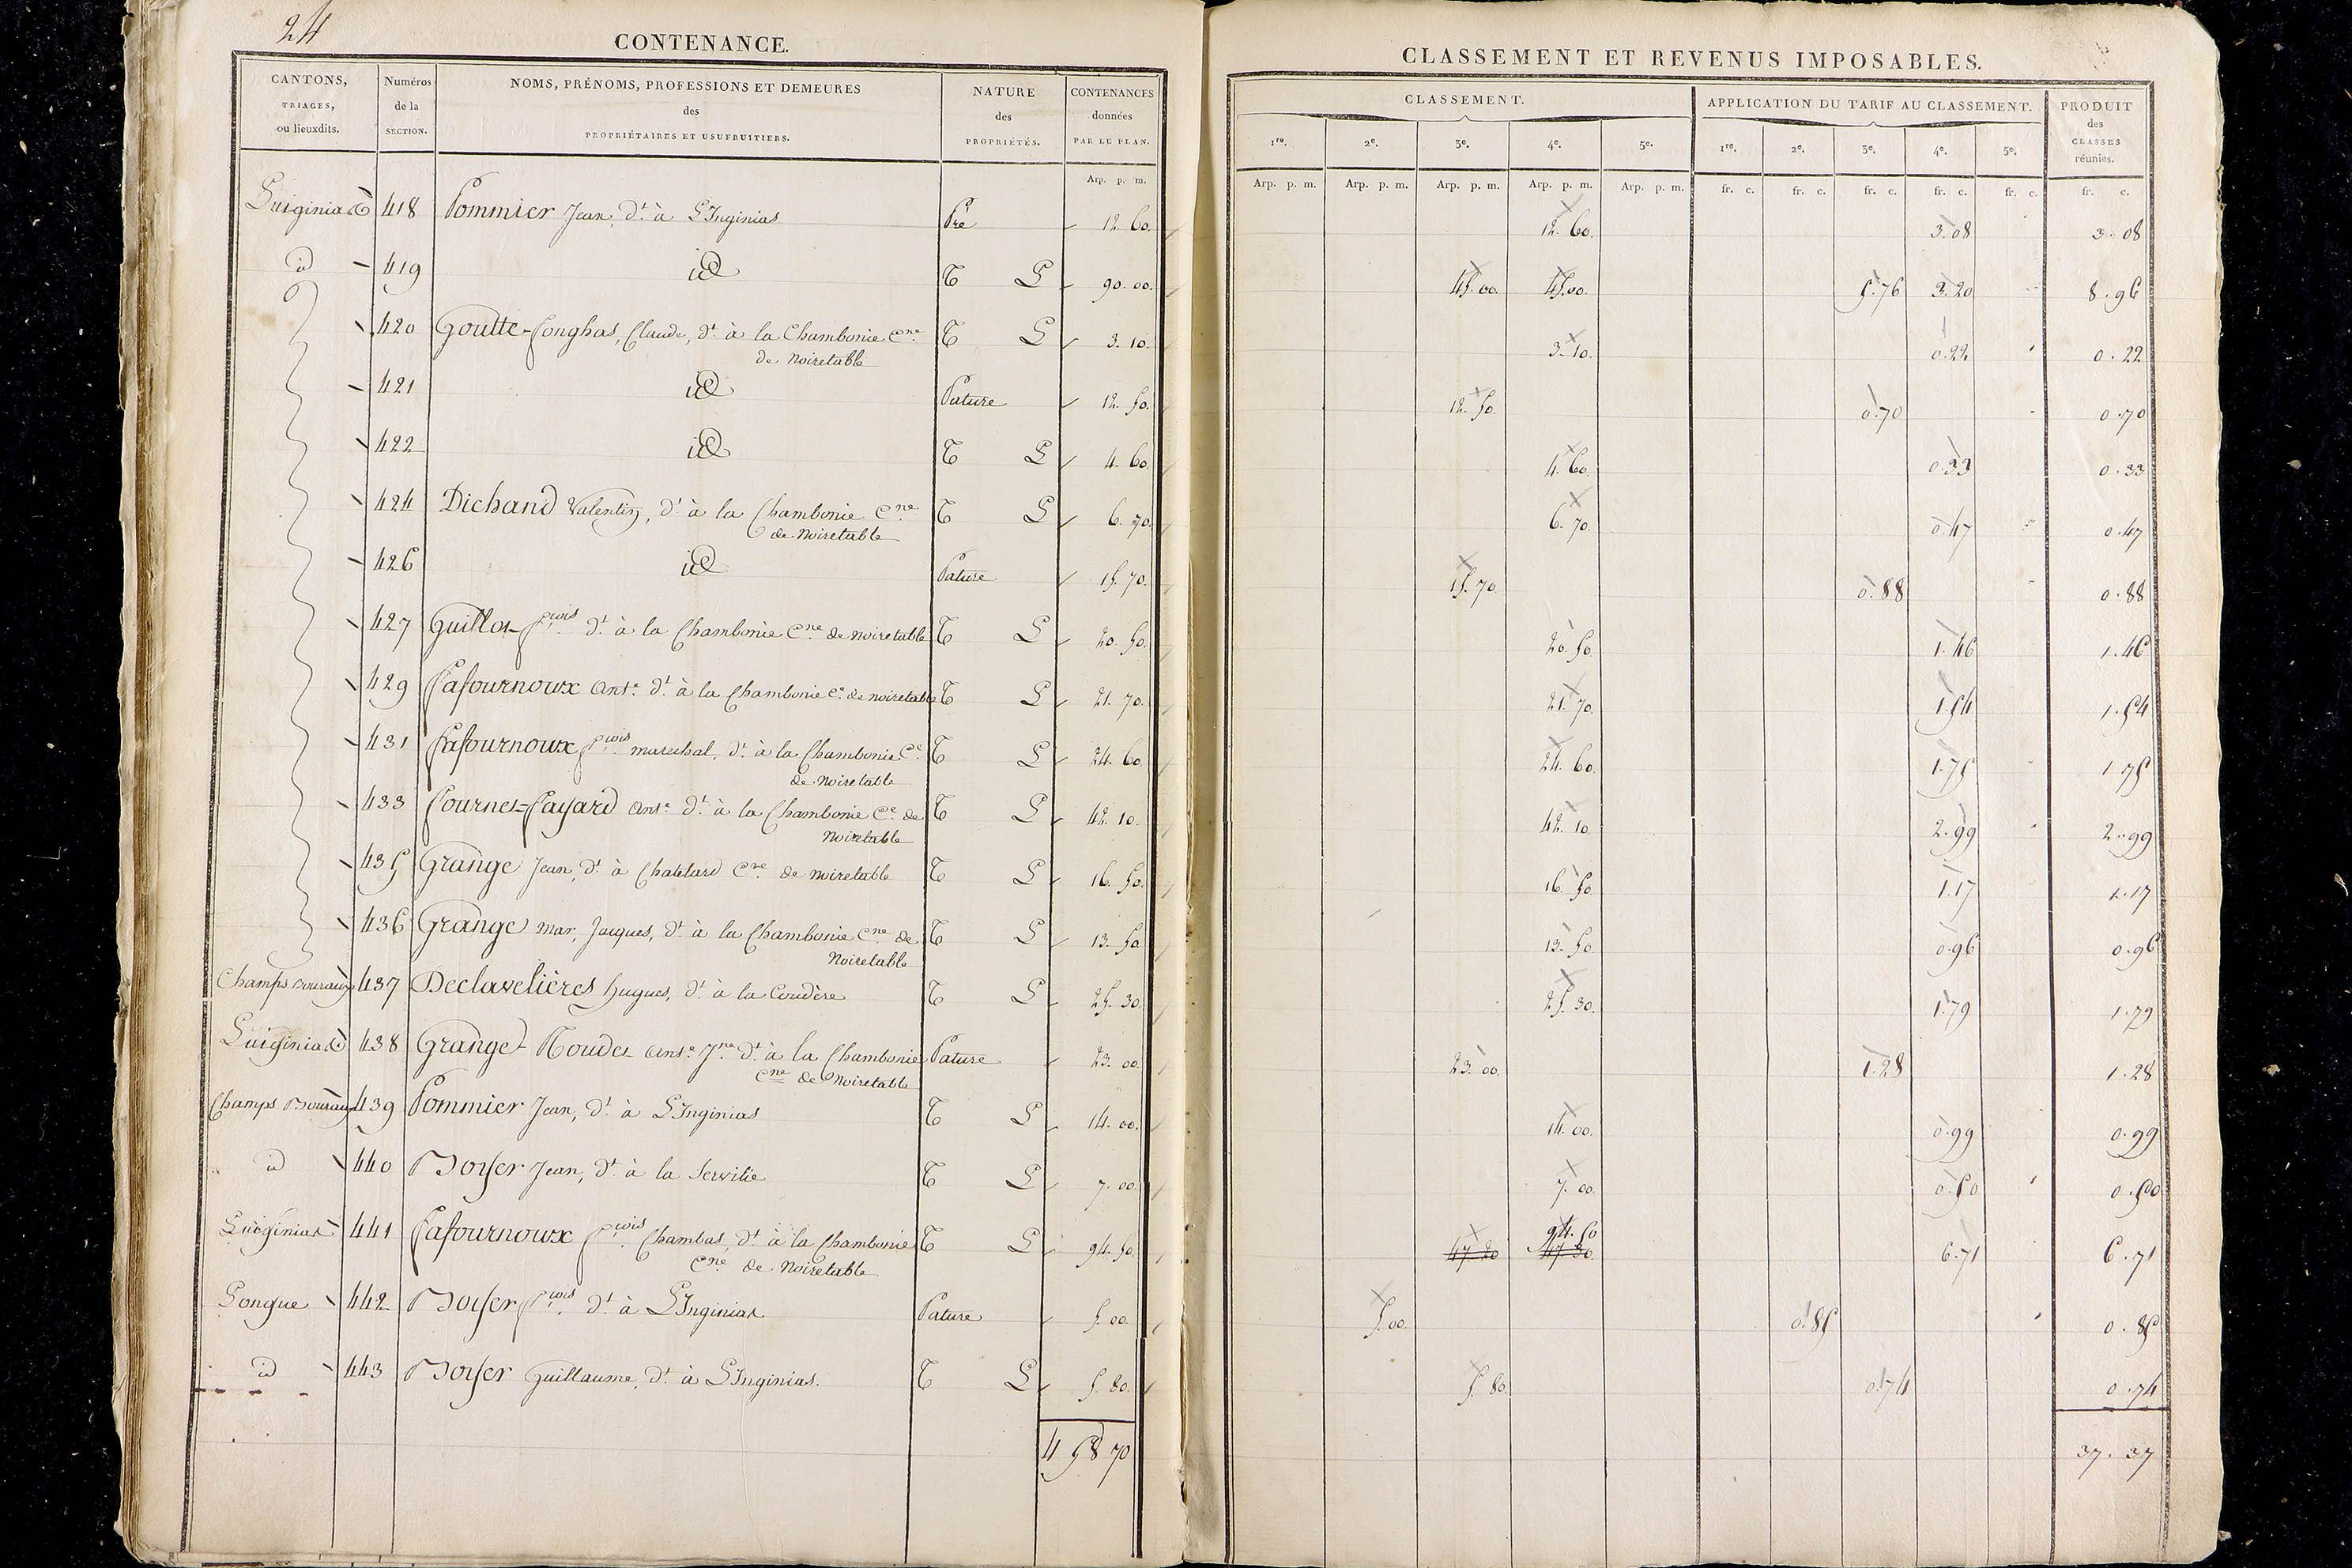 24
CONTENANCE.
CANTONS, TRIAGES, ou lieuxdits. | Numéros de la SECTION. | NOMS, PRÉNOMS, PROFESSIONS ET DEMEURES des PROPRIÉTAIRES ET USUFRUITIERS. | NATURE des PROPRIÉTÉS. | CONTENANCES données PAR LE PLAN.
Arp. p. m.
418 Pommier Jean, dt. à L'Inginias Pré 12. 60.
id 419 id T L 90. 00.
420 Goutte-Longhas, Claude, dt. à la Chambonie Cne. T L 3. 10.
de Noiretable
421 id Pature 12. 50.
422 id T L 4. 60.
424 Dichand Valentin, dt. à la Chambonie Cne. T L 6. 70.
de Noiretable
426 id Pature 15. 70.
427 dt. à la Chambonie Cne. de Noiretable T L 20. 50.
429 Lafournoux Ant.e dt. à la Chambonie Ce. de Noiretable T L 21. 70.
431 Lafournoux fçois marechal, dt. à la Chambonie Ce. T L 24. 60.
de Noiretable
433 Ant.e dt. à la Chambonie Ce. de T L 42. 10.
Noiretable
435 Grange Jean, dt. à Cne. de Noiretable T L 16. 50.
436 Grange Mar. Jacques, dt. à la Chambonie Cne. de T L 13. 50.
Noiretable
Champs 437 Declavelières hugues, dt. à la Coudère T L 25. 30.
438 Grange Ant.e Jne. dt. à la Chambonie Pature 23. 00.
Cne. de Noiretable
Champs 439 Pommier Jean, dt. à L'Inginias T L 14. 00.
id 440 Boyer Jean, dt. à la T L 7. 00.
441 Lafournoux fçois Chambas, dt. à la Chambonie T L 94. 50.
Cne. de Noiretable
Longue 442 Boyer fçois. dt. à L'Inginias Pature 5. 00.
id 443 Boyer Guillaume, dt. à L'Inginias. T L 5. 80.
458 70
CLASSEMENT ET REVENUS IMPOSABLES.
CLASSEMENT. | APPLICATION DU TARIF AU CLASSEMENT. | PRODUIT des CLASSES réunies.
1re. 2e. 3e. 4e. 5e. 1re. 2e. 3e. 4e. 5e.
Arp. p. m. Arp. p. m. Arp. p. m. Arp. p. m. Arp. p. m. fr. c. fr. c. fr. c. fr. c. fr. c. fr. c.
12. 60. 3. 08 3. 08
45. 00. 45. 00. 5. 76 3. 20 8. 96
3. 10. 0. 22 0. 22
12. 50. 0. 70 0. 70
4. 60. 0. 33 0. 33
6. 70. 0. 47 0. 47
15. 70. 0. 88 0. 88
20. 50. 1. 46 1. 46
21. 70. 1. 54 1. 54
24. 60. 1. 75 1. 75
42. 10. 2. 99 2. 99
16. 50. 1. 17 1. 17
13. 50. 0. 96 0. 96
25. 30. 1. 79 1. 79
23. 00. 1. 28 1. 28
14. 00. 0. 99 0. 99
7. 00. 0. 50 0. 50
94. 50
6. 71 6. 71
5. 00. 0. 85 0. 85
5. 80. 0. 74 0. 74
37. 37